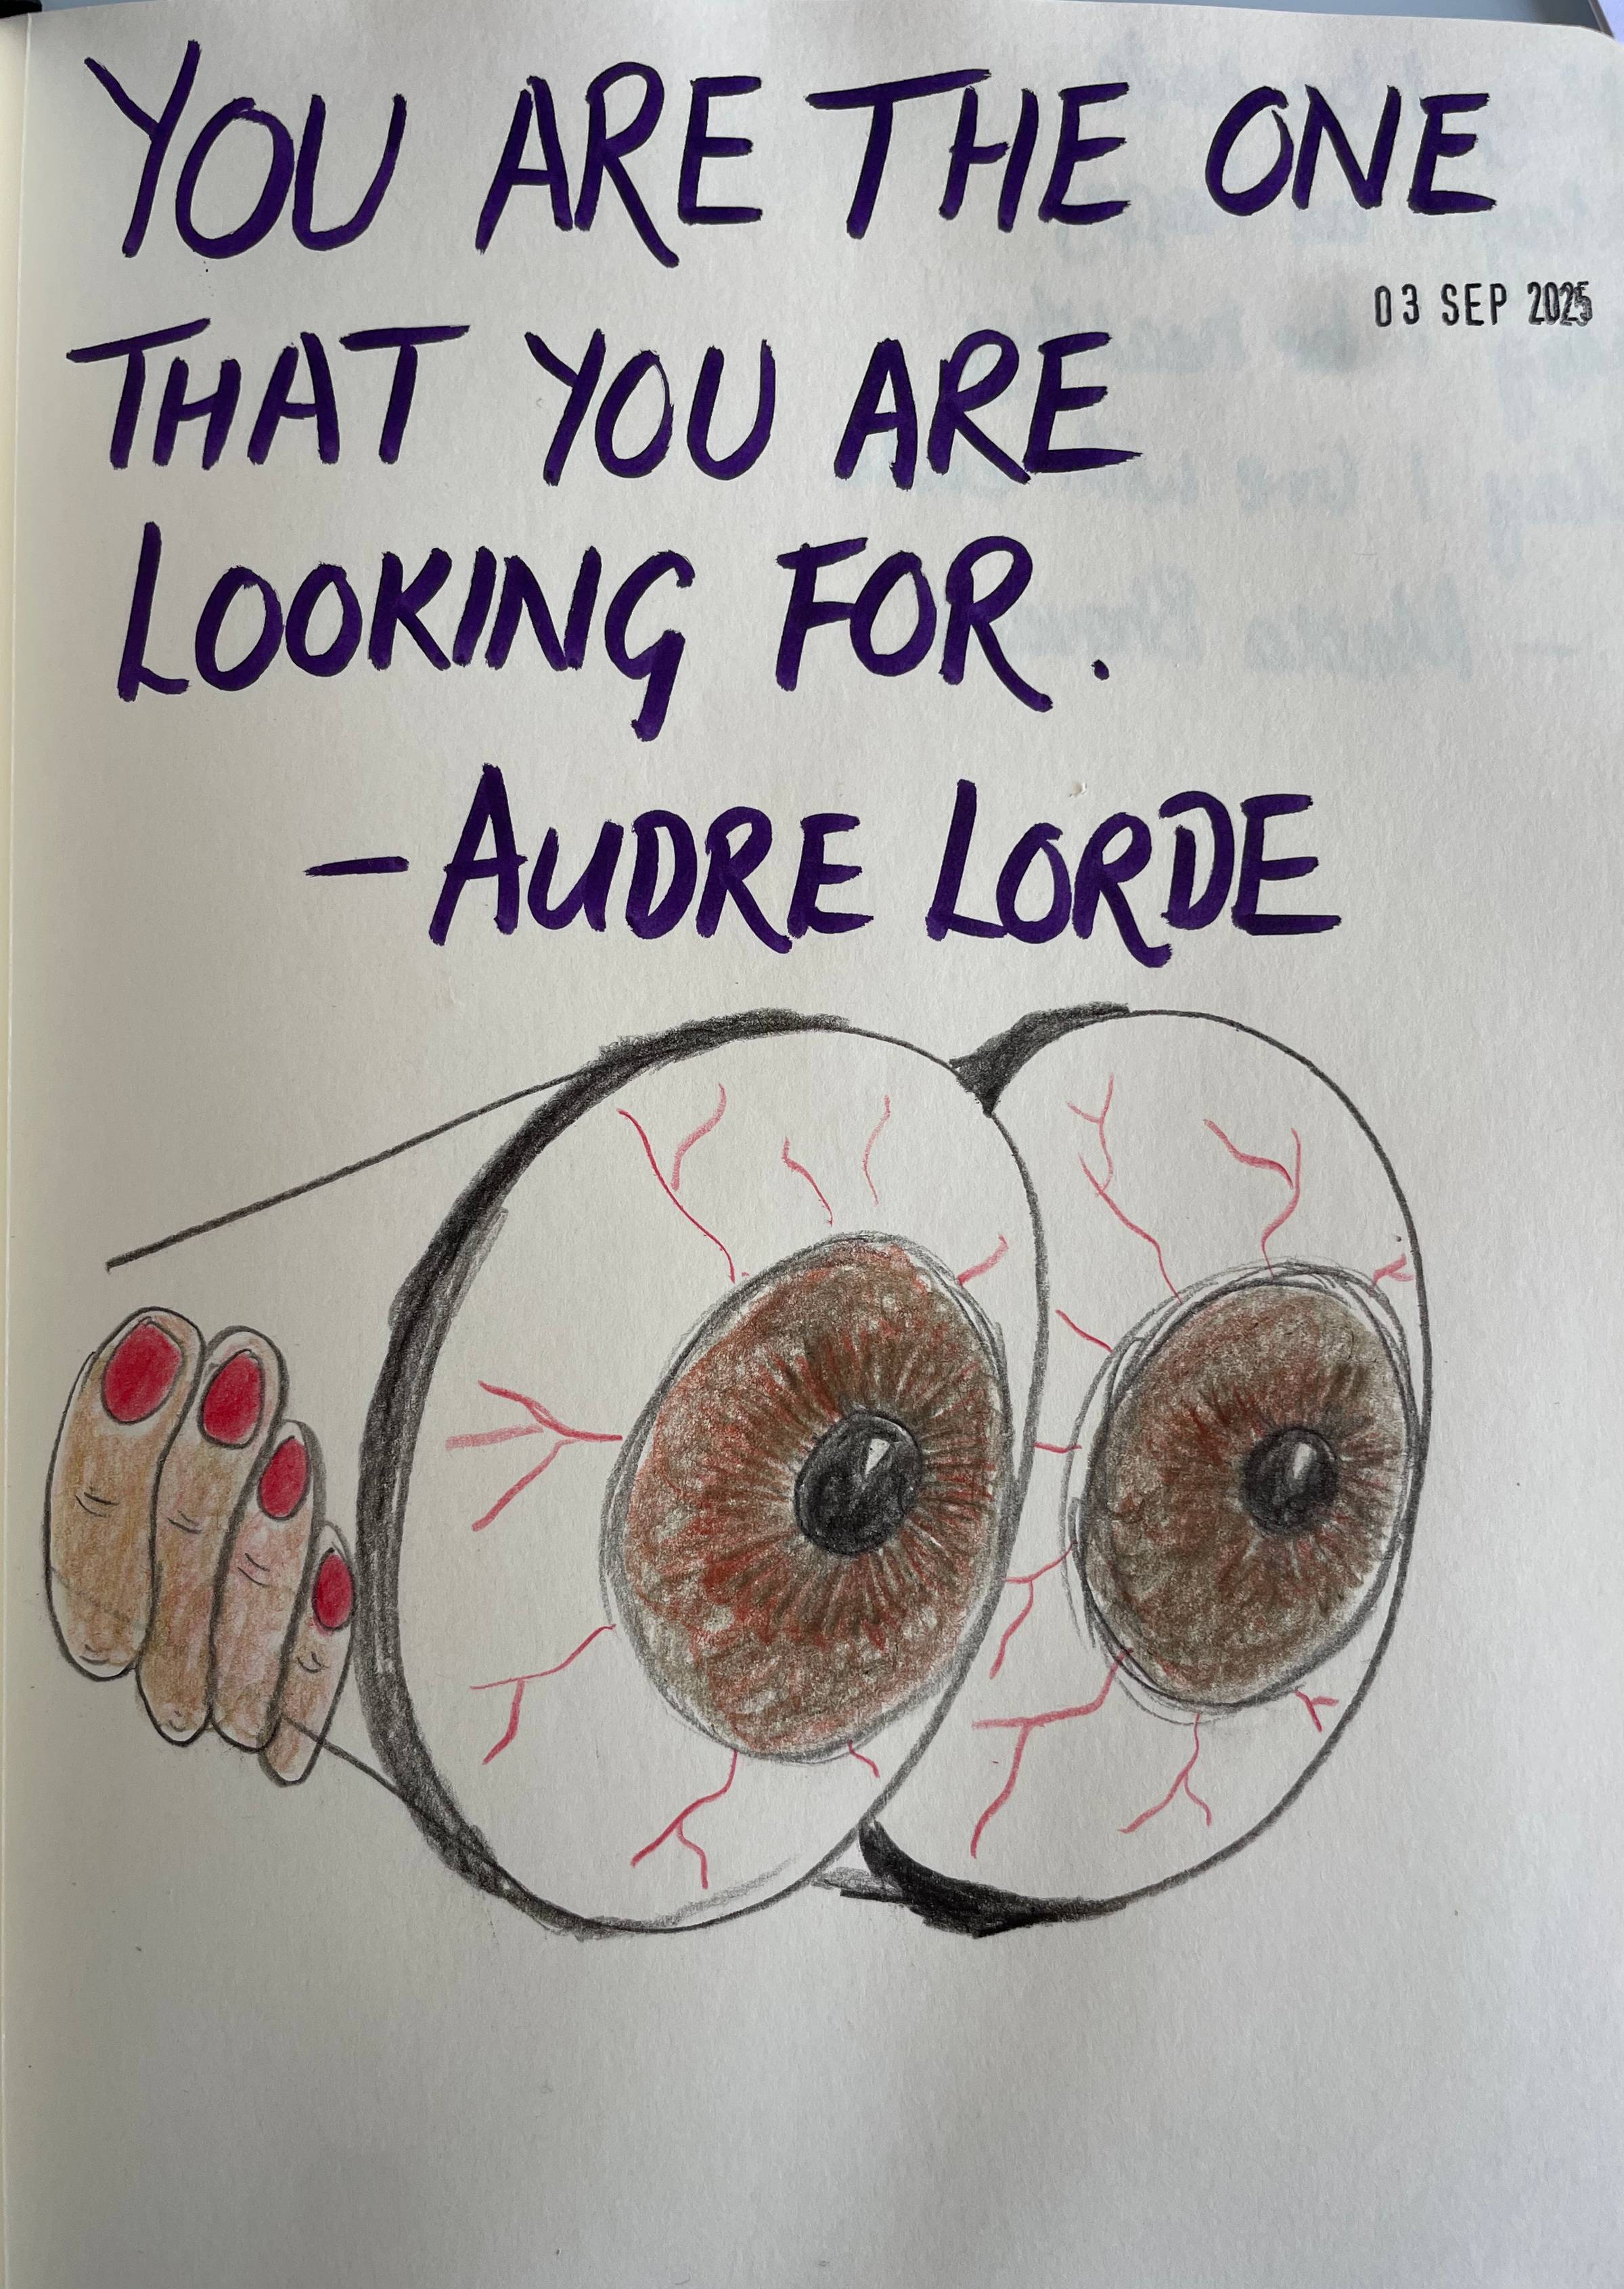 YOU ARE THE ONE
03 SEP 2025
THAT YOU ARE
LOOKING FOR.
—AUDRE LORDE